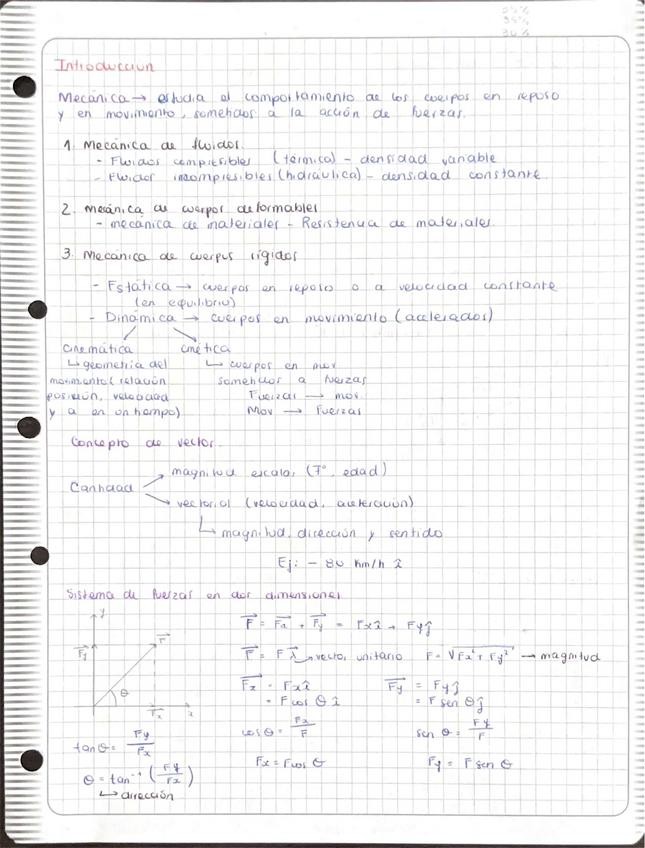 Introducción
Mecánica → estudia el comportamiento de los cuerpos en reposo
y en movimiento, sometidos a la acción de fuerzas.
1. Mecánica de fluidos.
- Fluidos compresibles (térmica) - densidad variable
- Fluidos incompresibles (hidráulica) - densidad constante.
2. Mecánica de cuerpos deformables
- mecánica de materiales - Resistencia de materiales.
3. Mecánica de cuerpos rígidos
- Estática → cuerpos en reposo o a velocidad constante
(en equilibrio)
- Dinámica → cuerpos en movimiento (acelerados)
Cinemática
↳ geometría del
movimiento (relación
posición, velocidad
y a en un tiempo)
cinética
↳ cuerpos en mov
sometidos a fuerzas
Fuerzas → mov.
Mov → Fuerzas
Concepto de vector.
Cantidad
magnitud escalar (T°, edad)
vectorial (velocidad, aceleración)
↳ magnitud, dirección y sentido
Ej: - 80 km/h î
Sistema de fuerzas en dos dimensiones
y
F⃗y
F⃗
θ
F⃗x
x
tan θ = Fy/Fx
θ = tan⁻¹ (Fy/Fx)
↳ dirección
F⃗ = F⃗x + F⃗y = Fx î + Fy ĵ
F⃗ = F λ⃗ → vector unitario F = √Fx² + Fy² → magnitud
F⃗x = Fx î F⃗y = Fy ĵ
= F cos θ î = F sen θ ĵ
cos θ = Fx/F sen θ = Fy/F
Fx = F cos θ Fy = F sen θ